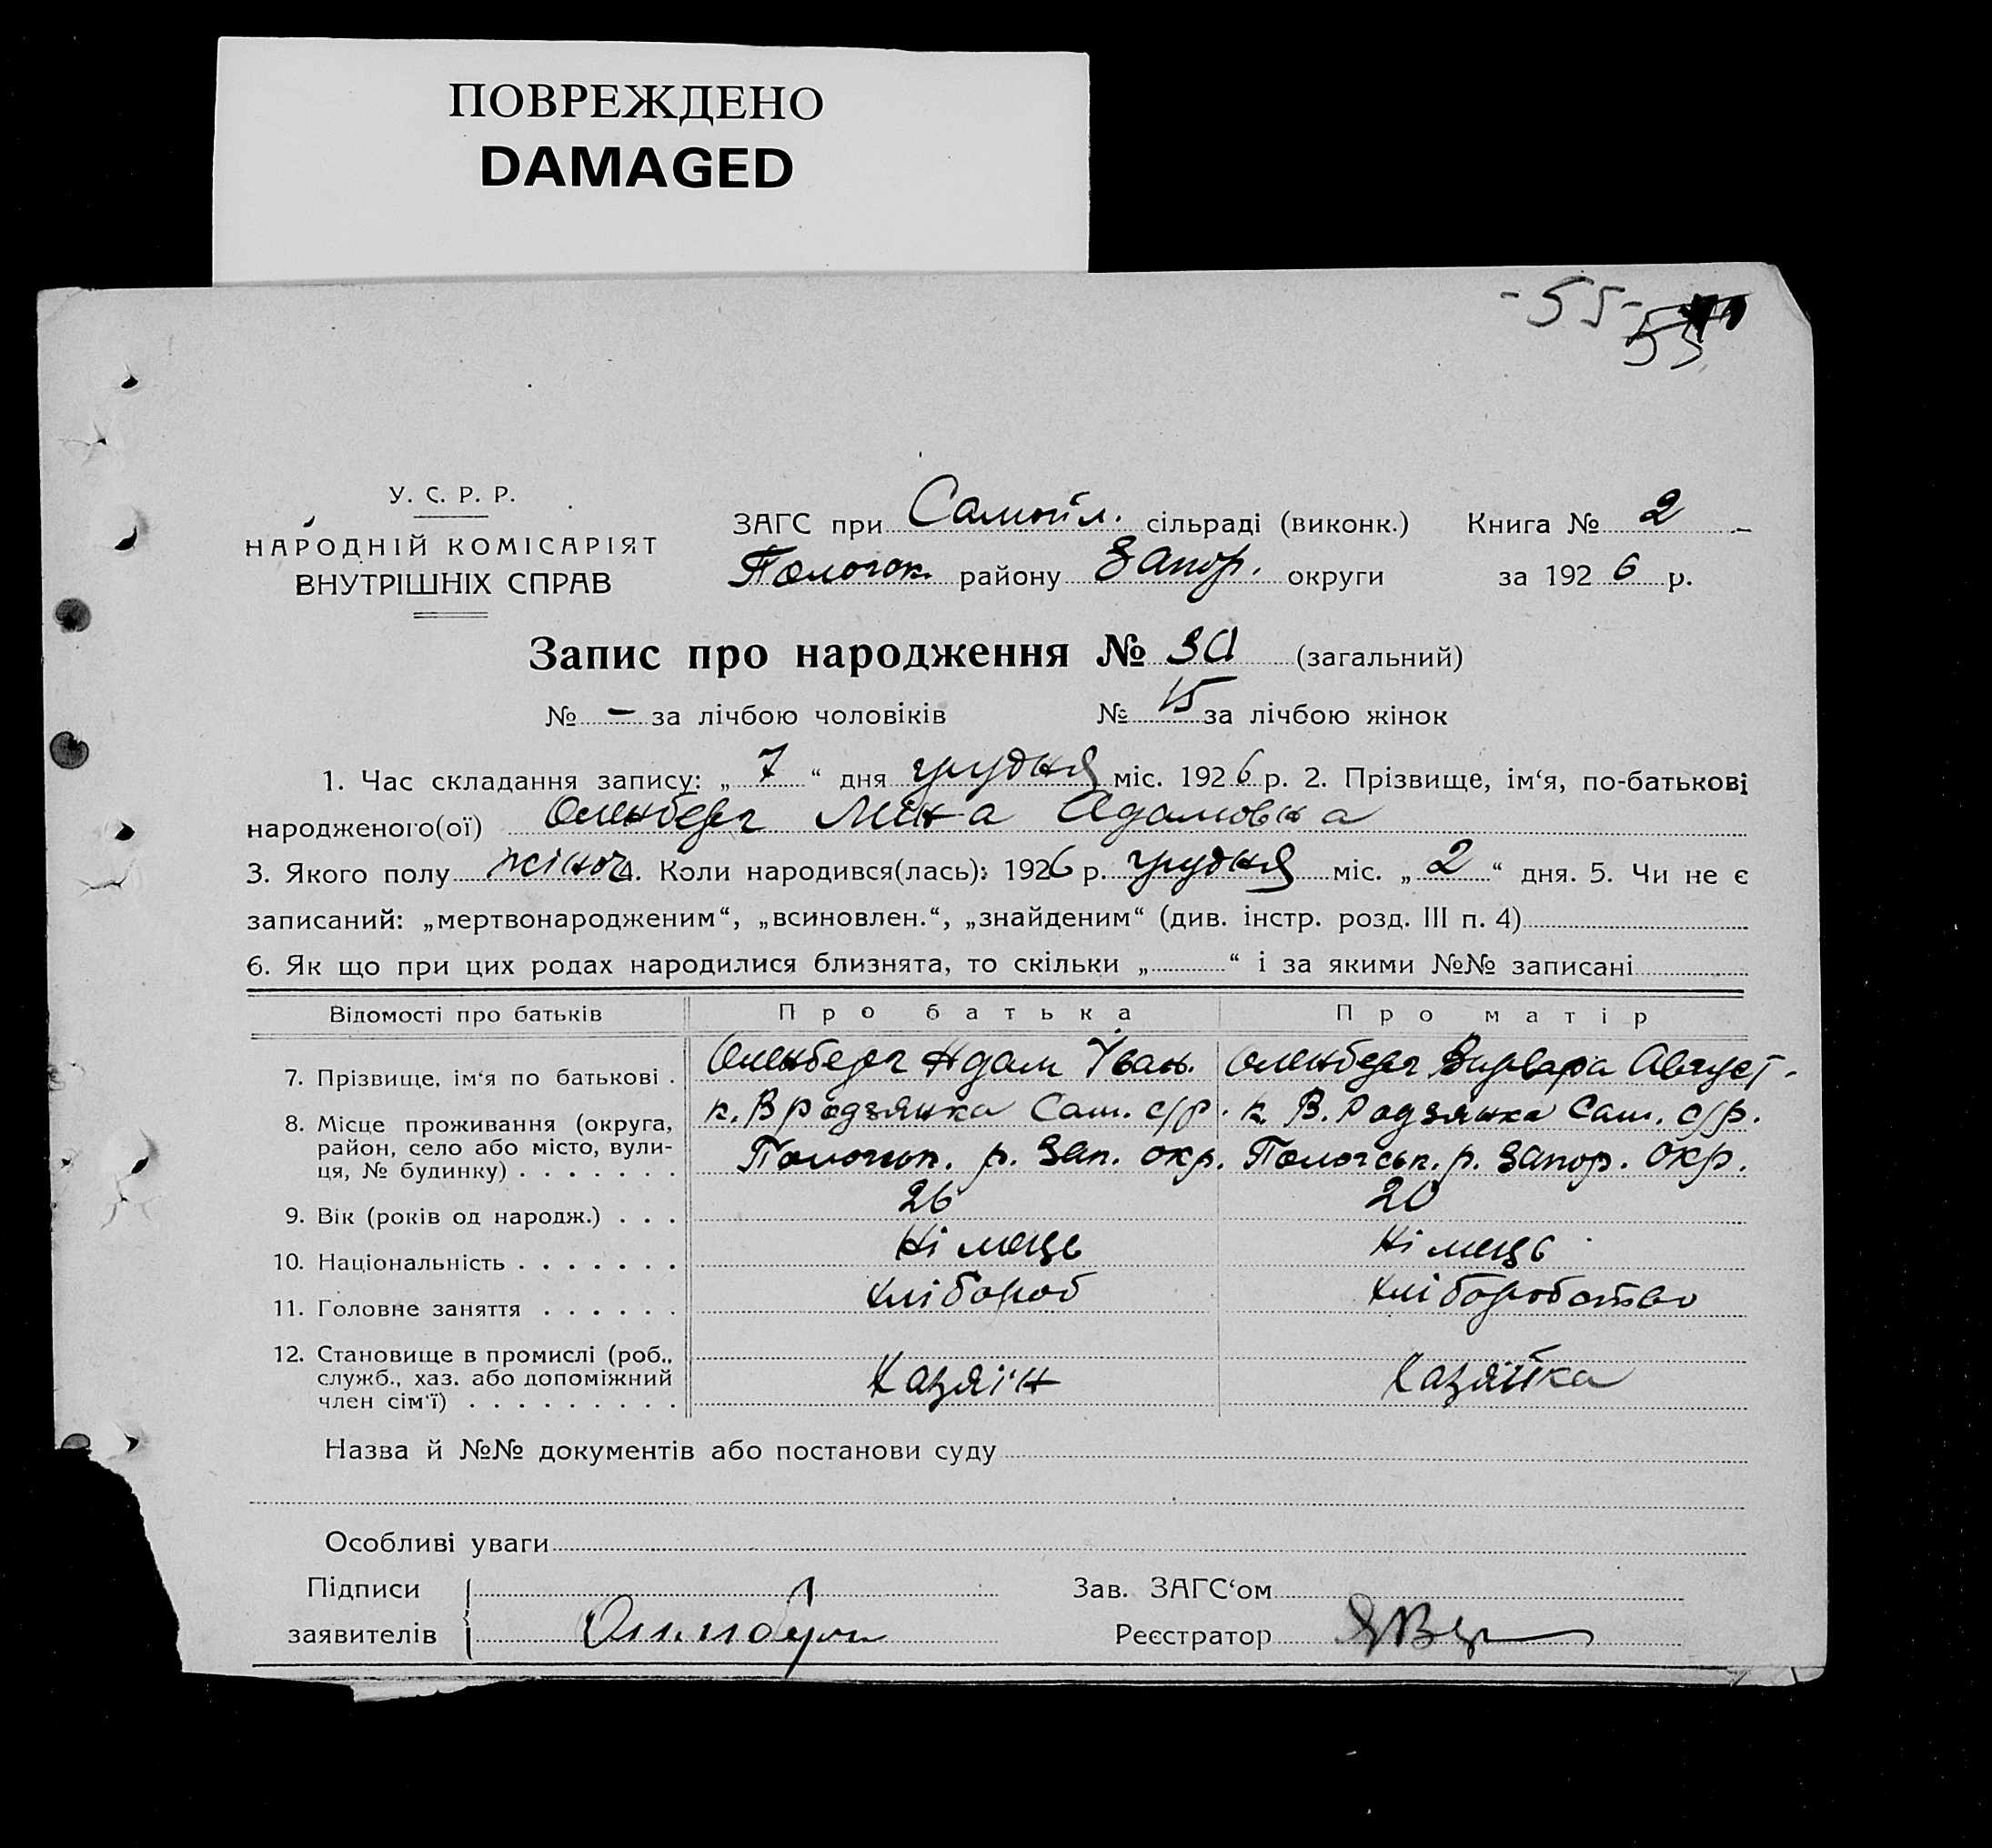 ПОВРЕЖДЕНО
DAMAGED
- 55 -
55
У. С. Р. Р.
НАРОДНІЙ КОМІСАРІЯТ
ВНУТРІШНІХ СПРАВ
ЗАГС при Самойл. сільраді (виконк.) Книга № 2
Пологок. району Запор. округи за 1926 р.
Запис про народження № 30 (загальний)
№ – за лічбою чоловіків № 15 за лічбою жінок
1. Час складання запису: „ 7 “ дня грудня міс. 1926 р. 2. Прізвище, ім‘я, по-батькові
народженого(ої) Оленберг Мина Адамовна
3. Якого полу жіноч 4. Коли народився(лась): 1926 р. грудня міс. „ 2 “ дня. 5. Чи не є
записаний: „мертвонародженим“, „всиновлен.“, „знайденим“ (див. інстр. розд. III п. 4)
6. Як що при цих родах народилися близнята, то скільки „ “ і за якими №№ записані
Відомості про батьків Про батька Про матір
7. Прізвище, ім‘я по батькові . Оленберг Адам Іван. Оленберг Варвара Август.
8. Місце проживання (округа, район, село або місто, вулиця, № будинку) . . . . . . . к. В Родзянка Сам. с/р. к. В. Родзянка Сам. с/р.
Пологськ. р. Зап. окр. Пологськ. р. Запор. окр.
9. Вік (років од народж.) . . . 26 20
10. Національність . . . . . . . Німець Німець
11. Головне заняття . . . . . . хлібороб хліборобство
12. Становище в промислі (роб., служб., хаз. або допоміжний член сім‘ї) . . . . . . . . . Хазяїн Хазяйка
Назва й №№ документів або постанови суду
Особливі уваги
Підписи Зав. ЗАГС‘ом
заявителів Реєстратор